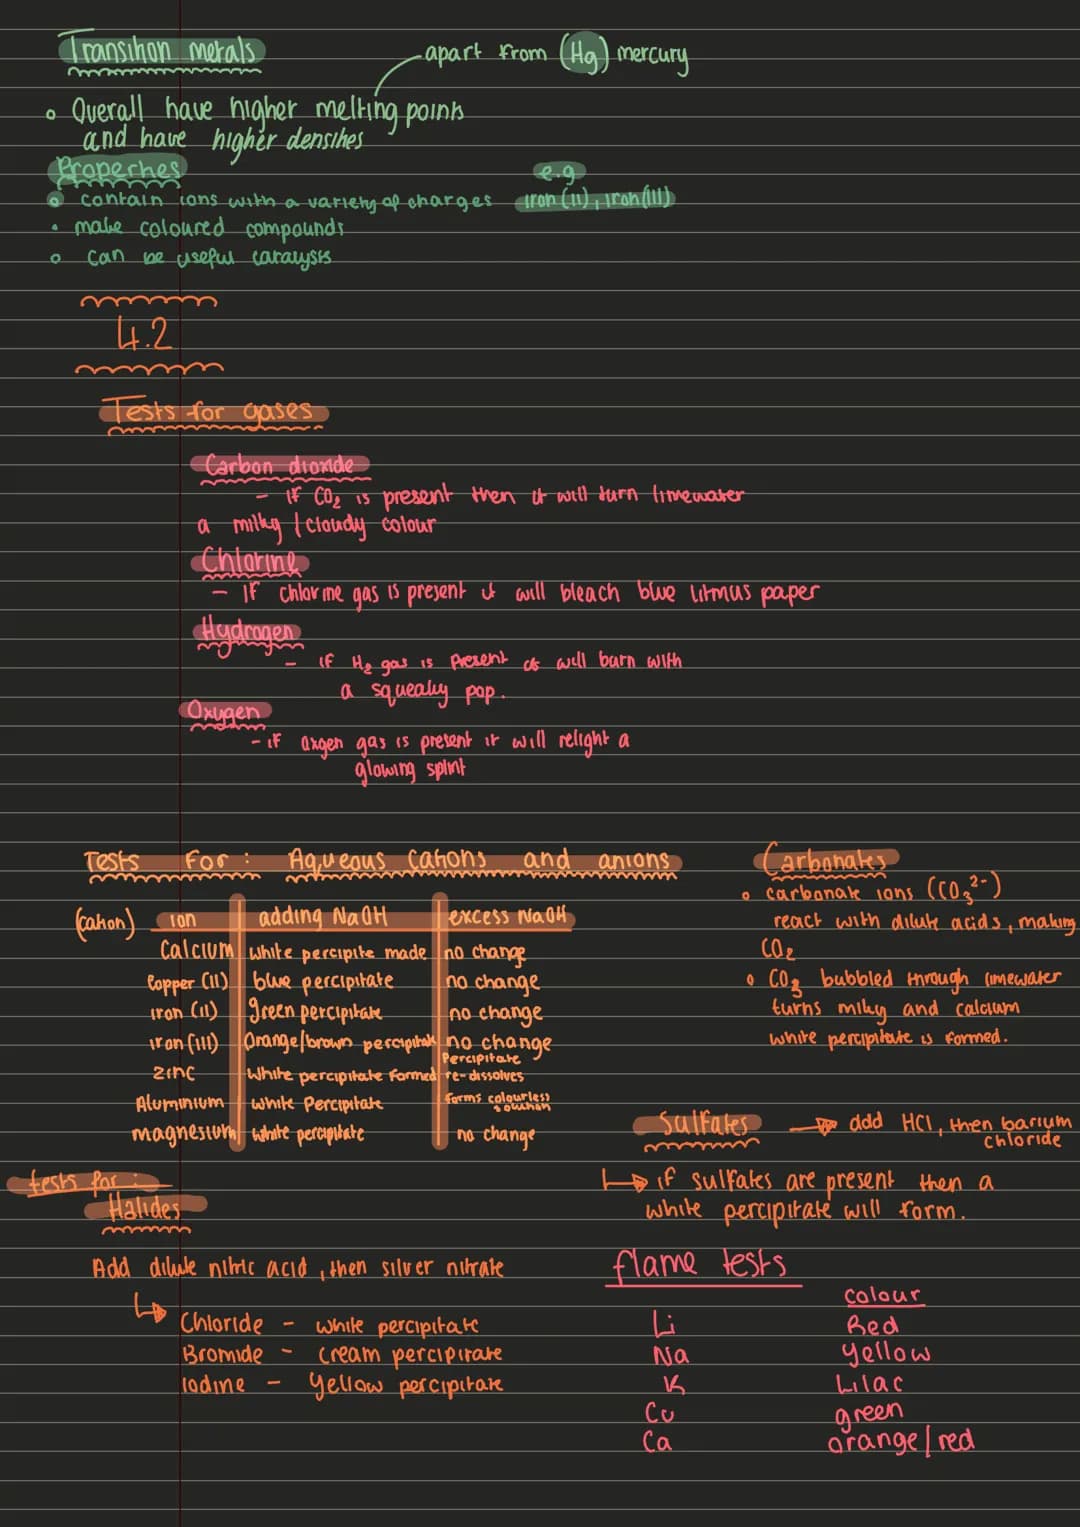 Transition metals
apart from (Hg) mercury
Overall have higher melting points
and have higher densities
Properties
e.g
contain ions with a variety of charges iron (II), iron (III)
make coloured compounds
can be useful catalysts
4.2
Tests for gases
Carbon dioxide
- if CO₂ is present then it will turn limewater
a milky / cloudy colour
Chlorine
- IF chlorine gas is present it will bleach blue litmus paper
Hydrogen
- if H₂ gas is present it will burn with
a squeaky pop.
Oxygen
- if oxgen gas is present it will relight a
glowing splint
Tests For: Aqueous cations and anions
(cation) ion adding NaOH excess NaOH
Calcium white percipite made no change
Copper (II) blue percipitate no change
iron (II) green percipitate no change
iron (III) Orange/brown percipitate no change
zinc white percipitate formed percipitate re-dissolves
Aluminium white Percipitate forms colourless solution
magnesium white percipitate no change
Carbonates
carbonate ions (CO₃²⁻)
react with dilute acids, making
CO₂
CO₂ bubbled through limewater
turns milky and calcium
white percipitate is formed.
Sulfates → add HCl, then barium
chloride
if sulfates are present then a
white percipitate will form.
tests for:
Halides
Add dilute nitric acid, then silver nitrate
Chloride - white percipitate
Bromide - cream percipitate
Iodine - Yellow percipitate
flame tests
colour
Li Red
Na Yellow
K Lilac
Cu green
Ca orange/red